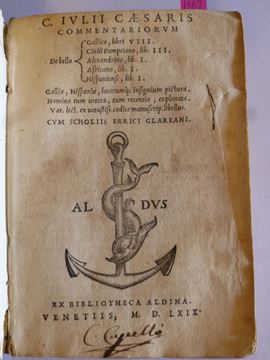 1569
C. IVLII CÆSARIS
COMMENTARIORVM
De bello
Gallico, libri VIII.
Ciuili Pompeiano, lib. III.
Alexandrino, lib. I.
Africano, lib. I.
Hispaniensi, lib. I.
Galliæ, Hispaniæ, locorumq; insignium pictura.
Nomina tum uetera, tum recentia, explanata.
Var. lect. ex uetustiss. codice manuscrip. libellus.
CVM SCHOLIIS ERRICI GLAREANI.
AL DVS
EX BIBLIOTHECA ALDINA.
VENETIIS, M. D. LXIX
C. Capello